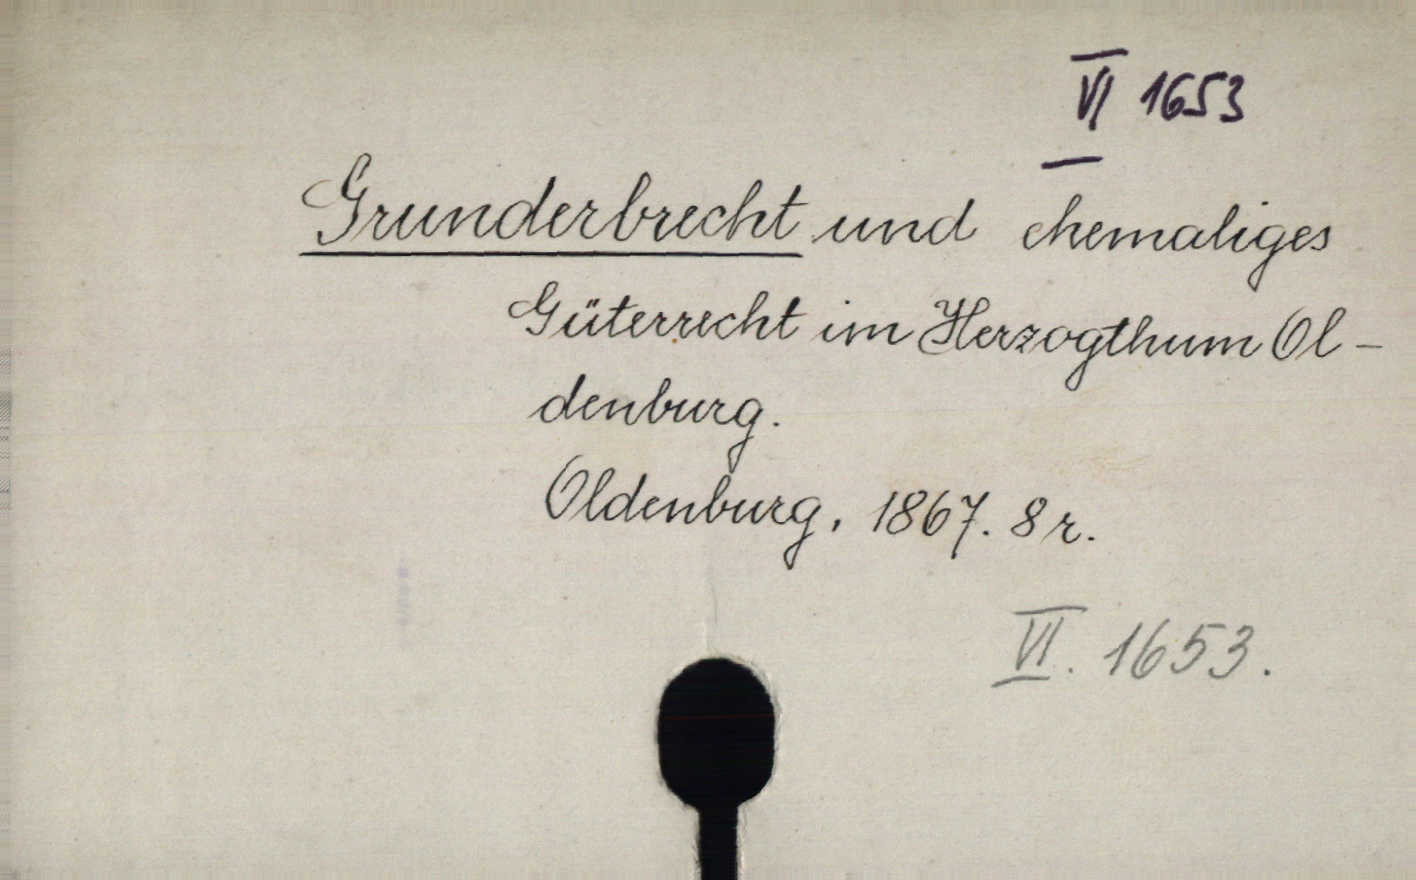 VI 1653
Grunderbrecht und ehemaliges
Güterrecht im Herzogthum Ol-
denburg.
Oldenburg, 1867. 8r.
VI. 1653.